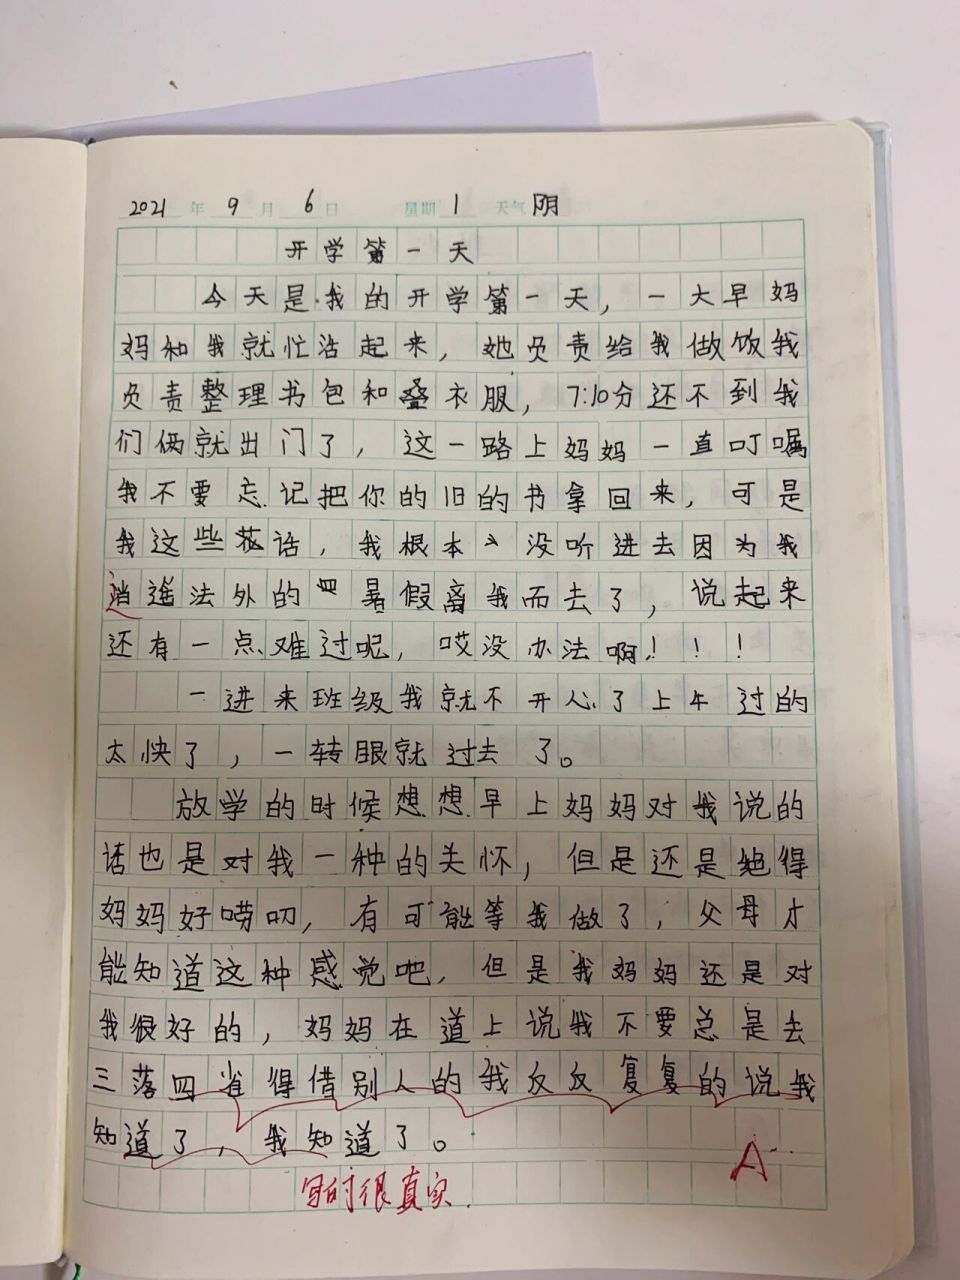 2021 年 9 月 6 日 星期 1 天气 阴
开学第一天
今天是我的开学第一天，一大早妈
妈和我就忙活起来，她负责给我做饭我
负责整理书包和叠衣服，7:10分还不到我
们俩就出门了，这一路上妈妈一直叮嘱
我不要忘记把你的旧的书拿回来，可是
我这些花话，我根本没听进去因为我
逍遥法外的暑假离我而去了，说起来
还有一点难过呢，哎没办法啊！！！
一进来班级我就不开心了上午过的
太快了，一转眼就过去了。
放学的时候想想早上妈妈对我说的
话也是对我一种的关怀，但是还是觉得
妈妈好唠叨，有可能等我做了，父母才
能知道这种感觉吧，但是我妈妈还是对
我很好的，妈妈在道上说我不要总是去
三落四省得借别人的我反反复复的说我
知道了，我知道了。
写的很真实.
A